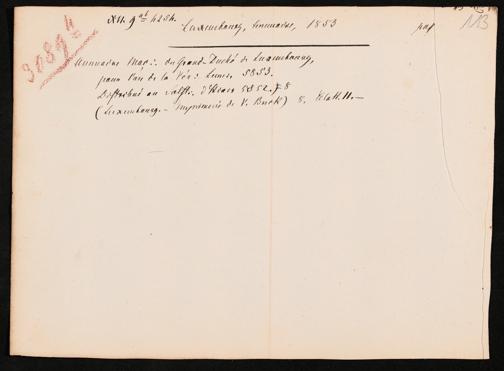 XII. 9ᵃᵗ 4254.
Luxembourg, Annuaire, 1853
113
30894
Annuaire Maç∴ du Grand-Duché de Luxembourg,
pour l'an de la Vér∴ Lum∴ 5853.
Distribué au Solst∴ d'hiver 5852.
(Luxembourg. - Imprimerie de V. Buck) 8. Etatt. 11. -